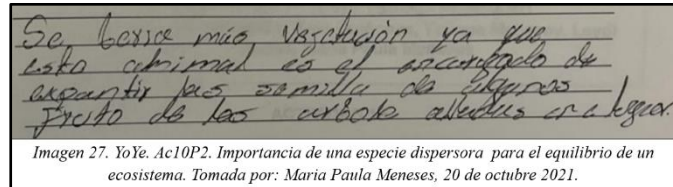 Se más Vegetación ya que
esto animal es el encargado de
expantir las semilla de algunos
fruto de los arbole
Imagen 27. YoYe. Ac10P2. Importancia de una especie dispersora para el equilibrio de un
ecosistema. Tomada por: Maria Paula Meneses, 20 de octubre 2021.